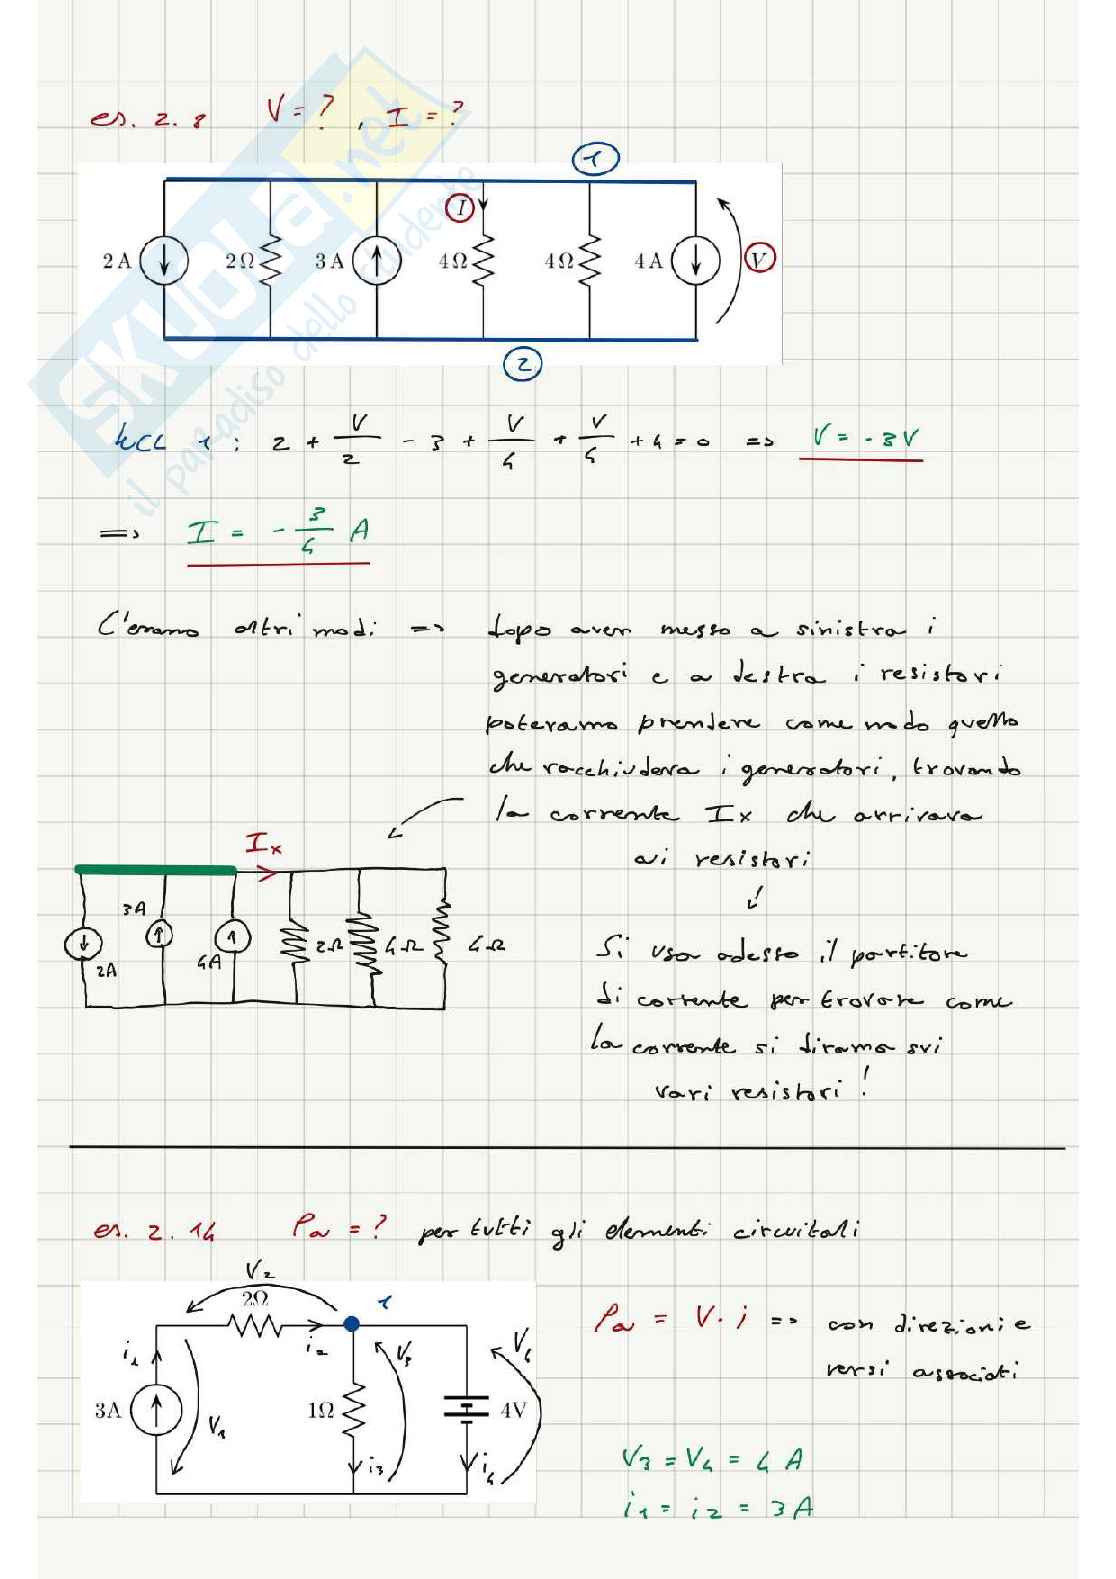 es. 2. 8 V = ? , I = ?
1
I
2 A 2 Ω 3 A 4 Ω 4 Ω 4 A V
2
KCL 1 : 2 + V/2 - 3 + V/4 + V/4 + 4 = 0 => V = - 3 V
=> I = - 3/4 A
C'erano altri modi => dopo aver messo a sinistra i
generatori e a destra i resistori
potevamo prendere come nodo quello
che racchiudeva i generatori, trovando
la corrente Ix che arrivava
ai resistori
Ix
3A
2A 4A 2Ω 4Ω 4Ω
Si usa adesso il partitore
di corrente per trovare come
la corrente si dirama sui
vari resistori !
es. 2. 14 Pa = ? per tutti gli elementi circuitali
V2
2Ω 1
i1 i2 V3 V4
Pa = V · i => con direzioni e
versi associati
3A V1 1Ω 4V
i3 i4
V3 = V4 = 4 A
i1 = i2 = 3 A
SKUOLA.net
il paradiso dello studente